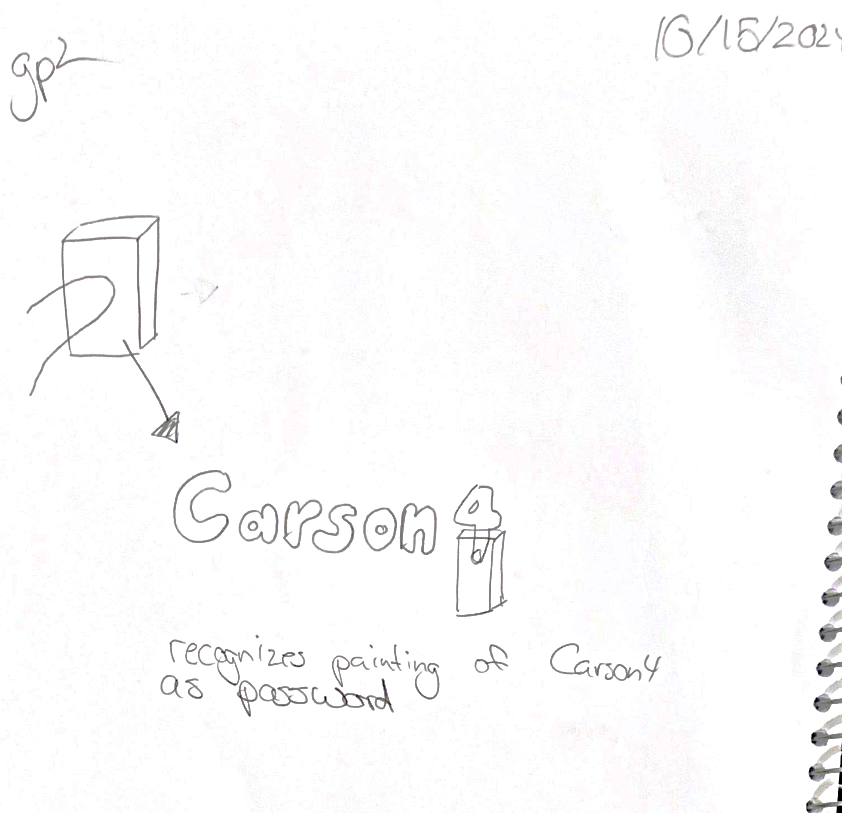 gp2
10/15/2024
Carson 4
recognizes painting of Carson4
as password